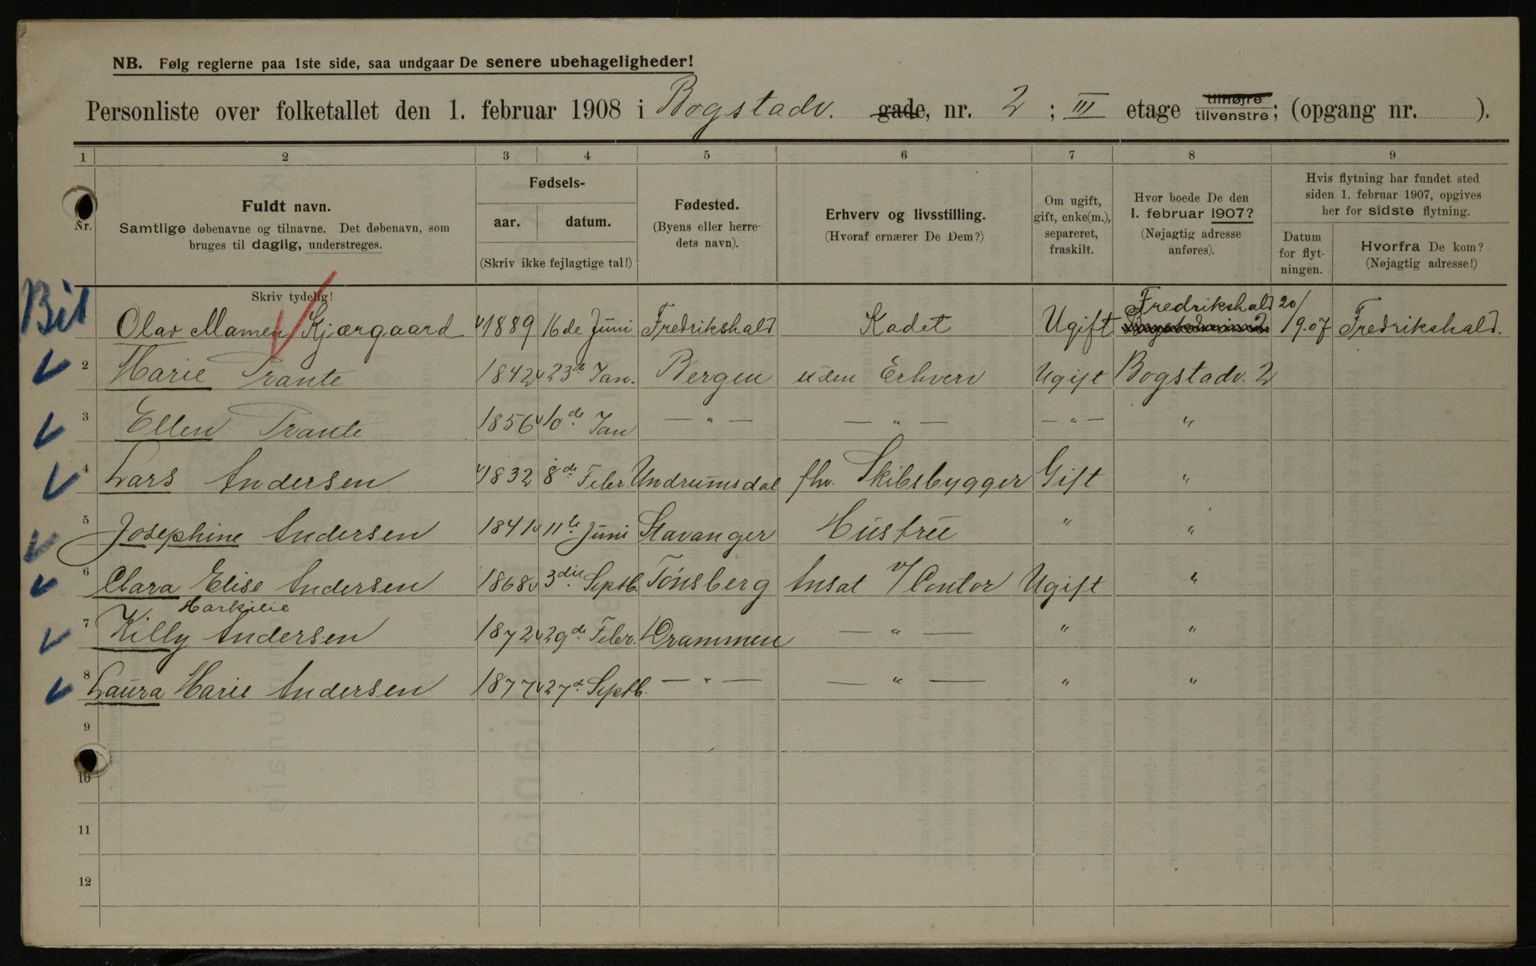 NB. Følg reglerne paa 1ste side, saa undgaar De senere ubehageligheder!
Personliste over folketallet den 1. februar 1908 i Bogstadv. gade, nr. 2 ; III etage tilhøjre tilvenstre; (opgang nr. ).
1 2 3 4 5 6 7 8 9
Nr.
Fuldt navn.
Samtlige døbenavne og tilnavne. Det døbenavn, som
bruges til daglig, understreges.
Fødsels-
aar. datum.
(Skriv ikke fejlagtige tal!)
Fødested.
(Byens eller herre-
dets navn).
Erhverv og livsstilling.
(Hvoraf ernærer De Dem?)
Om ugift,
gift, enke(m.),
separeret,
fraskilt.
Hvor boede De den
1. februar 1907?
(Nøjagtig adresse
anføres).
Hvis flytning har fundet sted
siden 1. februar 1907, opgives
her for sidste flytning.
Datum
for flyt-
ningen.
Hvorfra De kom?
(Nøjagtig adresse!)
Skriv tydelig!
Bil Olav Mamen Kjærgaard 1889 16de Juni Fredrikshald Kadet Ugift Fredrikshald 20/9.07 Fredrikshald.
2 Marie Trante 1842 23de Jan. Bergen uden Erhverv Ugift Bogstadv. 2
3 Ellen Trante 1856 10de Jan — " — — " — — " — "
4 Lars Andersen 1832 8de Febr. Undrumsdal fhv. Skibsbygger Gift "
5 Josephine Andersen 1841 11te Juni Stavanger Hustru " "
6 Clara Elise Andersen 1868 3die Septb. Tönsberg Ansat v/ Contor Ugift "
7 Killy Andersen 1872 29de Febr. Drammen — " — " "
8 Laura Marie Andersen 1877 27de Septb. — " — — " — " "
9
10
11
12